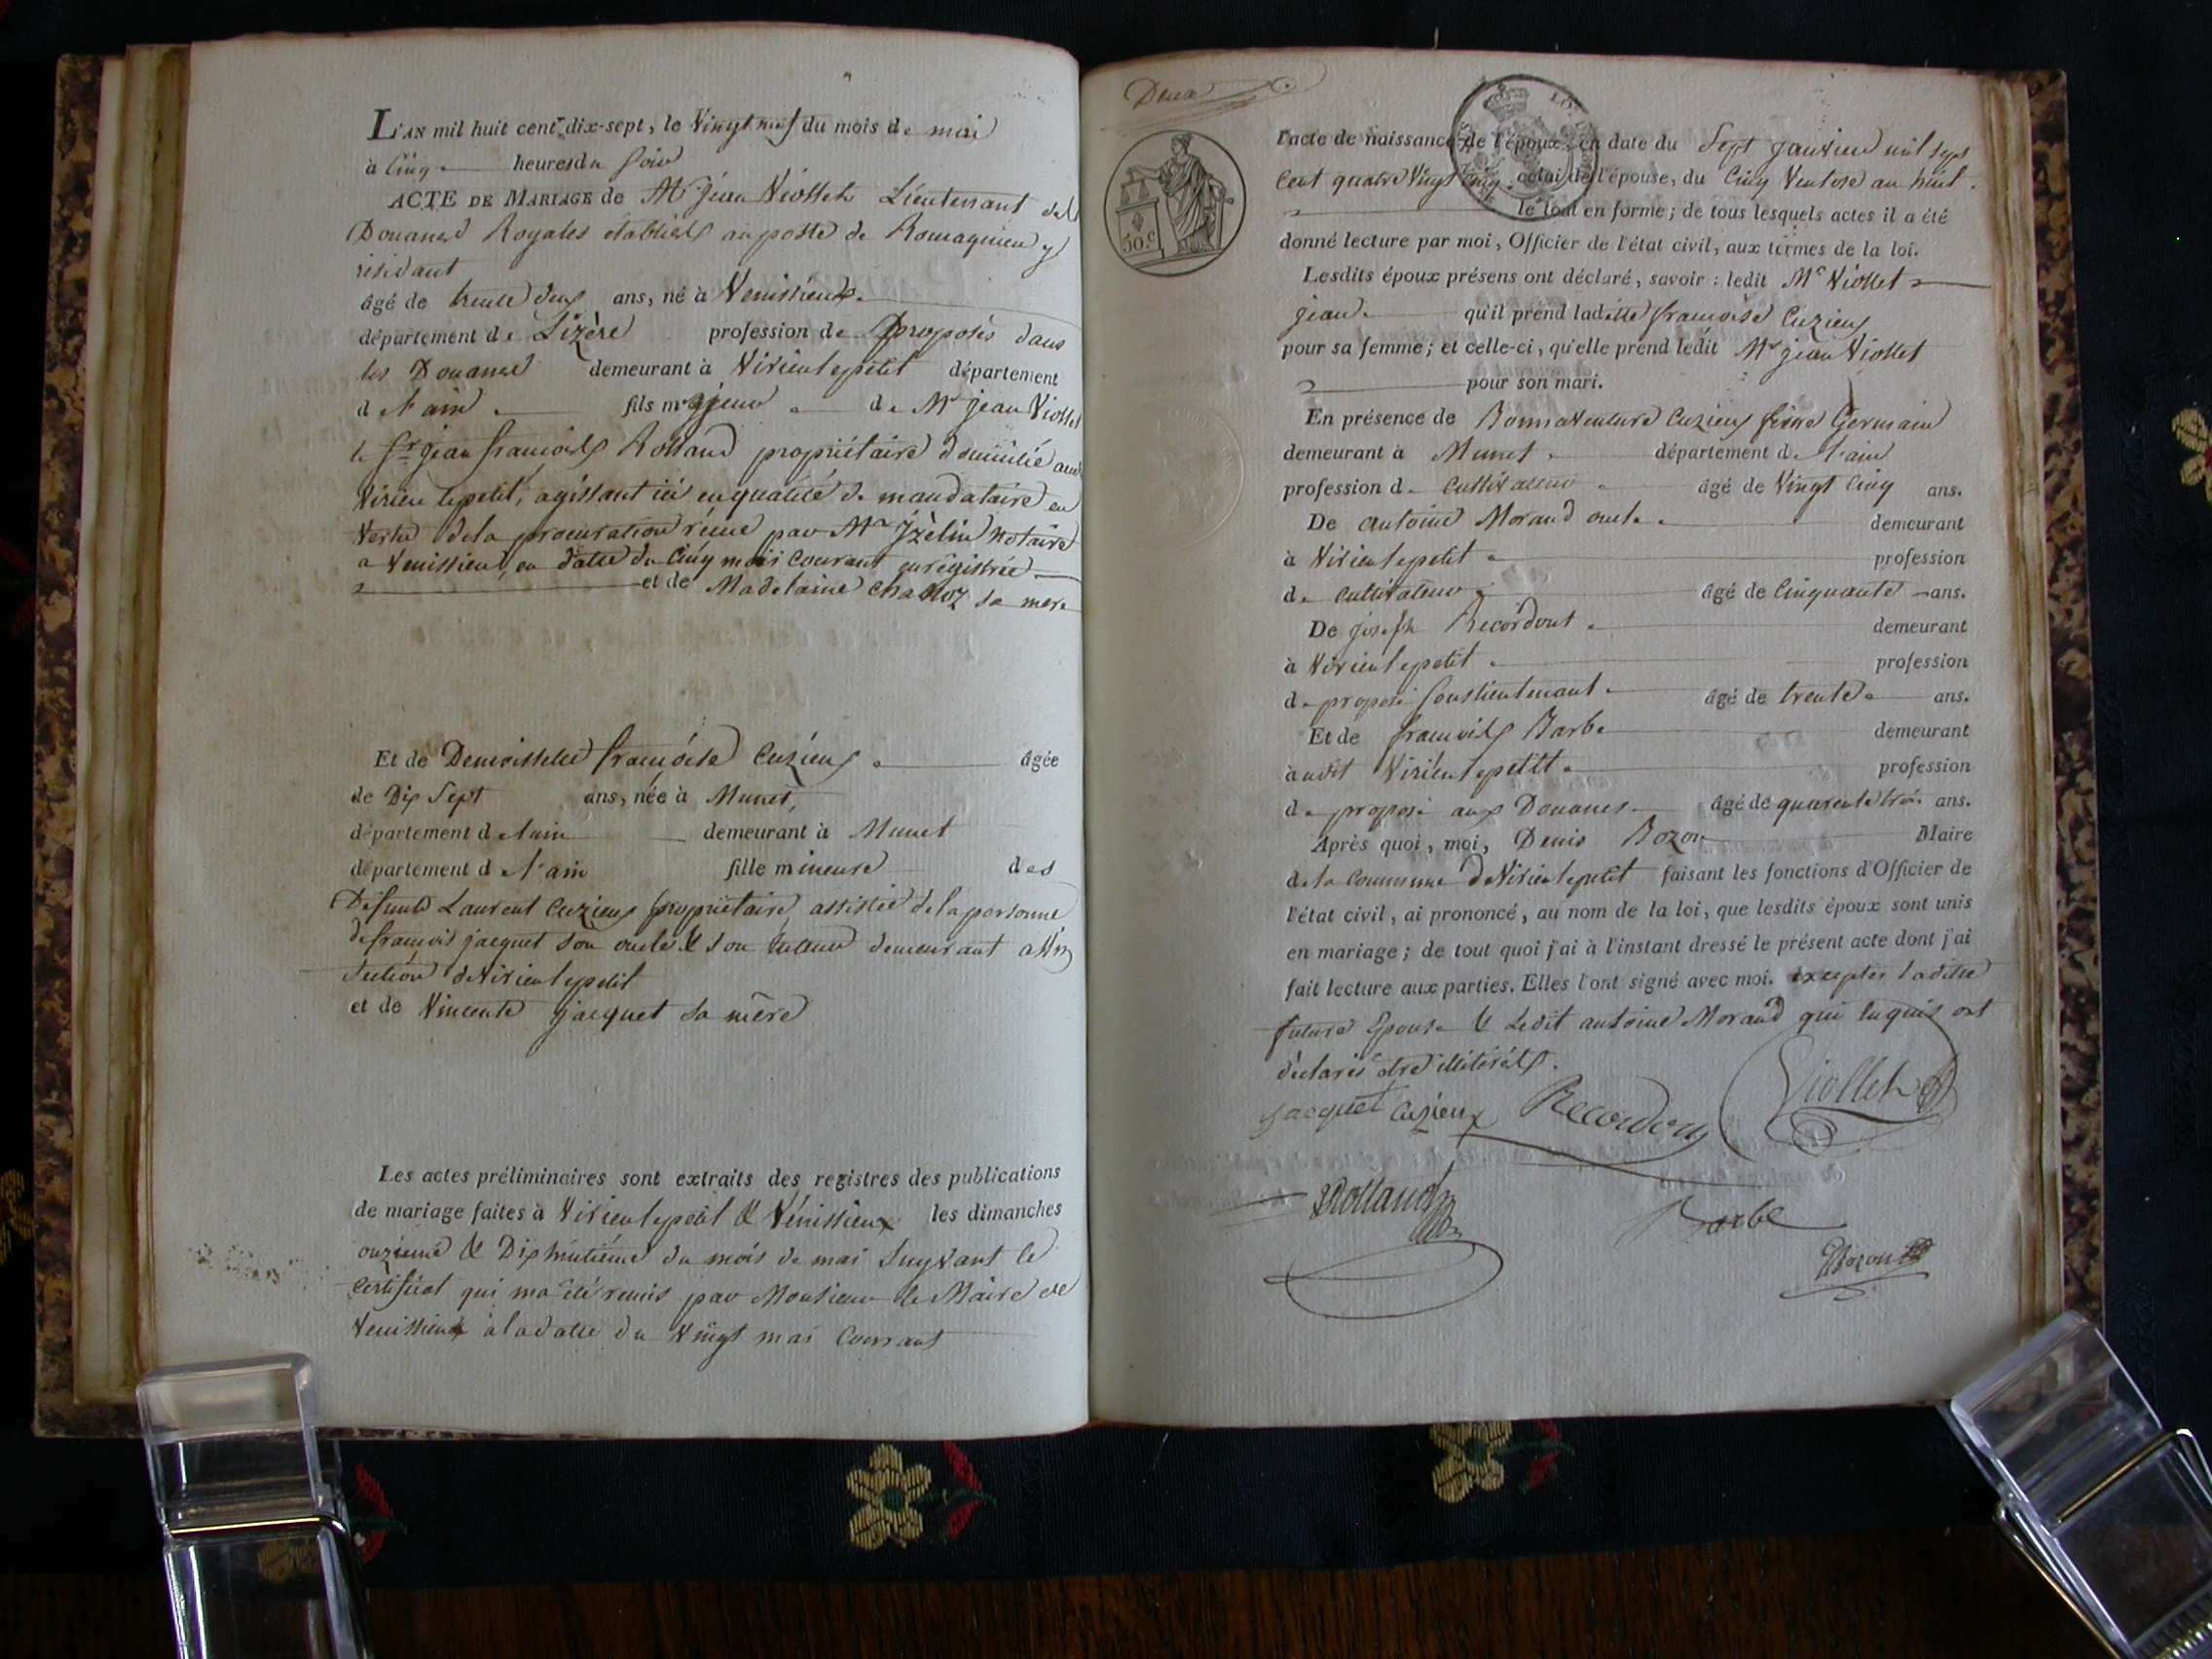 L'AN mil huit cent dix-sept, le Vingt neuf du mois de mai
à Cinq heures du Soir
ACTE DE MARIAGE de Mr jean Viollet Lieutenant des
Douanes Royales établies au poste de Romagnieu y
résidant
âgé de trente deux ans, né à Venissieux
département de Lizère profession de préposés dans
les Douanes demeurant à Virieulepetit département
de l'ain fils majeur de Mr jean Viollet
le Sr jean françois Rolland propriétaire domicilié
Virieu lepetit, agissant ici enqualité de mandataire en
Vertu dela procuration récue par Mr Jzèlin Notaire
a Venissieux, en datte du Cinq mai Courant enrégistrée
et de Madelaine sa mere
Et de Demoisselle françoise Cuzieux âgée
de Dix Sept ans, née à Munet,
département de lain demeurant à Munet
département de l'ain fille mineure des
Défunt Laurent Cuzieux propriétaire assistée dela personne
de françois jacquet son oncle & son tuteur demeurant
Section deVirieulepetit
et de Vincente jacquet sa mère
Les actes préliminaires sont extraits des registres des publications
de mariage faites à Virieulepetit & Vénissieux les dimanches
onzieme & Dixhuitième du mois de mai Suyvant le
Certificat qui ma été remis par Monsieur le Maire de
Venissieux aladatte du Vingt mai Courrant
50.c
l'acte de naissance de l'époux en date du Sept janvier mil sept
cent quatre Vingt cinq, celui de l'épouse, du Cinq Ventose an huit.
le tout en forme; de tous lesquels actes il a été
donné lecture par moi, Officier de l'état civil, aux termes de la loi.
Lesdits époux présens ont déclaré, savoir : ledit Mr Viollet
jean qu'il prend ladite françoise Cuzieux
pour sa femme; et celle-ci, qu'elle prend ledit Mr jean Viollet
pour son mari.
En présence de Bonnaventure Cuzieux frère Germain
demeurant à Munet département de l'ain
profession de Cultivateur âgé de Vingt Cinq ans.
De antoine Morand oncle demeurant
à Virieulepetit profession
de Cultivateur âgé de Cinquante ans.
De joseph Recordont demeurant
à Virieulepetit profession
de préposé Souslieutenant âgé de trente ans.
Et de françois Barbe demeurant
à udit Virieulepetit profession
de préposé aux Douanes âgé de quarente trois ans.
Après quoi, moi, Denis Bozon Maire
de la Commune deVirieulepetit faisant les fonctions d'Officier de
l'état civil, ai prononcé, au nom de la loi, que lesdits époux sont unis
en mariage; de tout quoi j'ai à l'instant dressé le présent acte dont j'ai
fait lecture aux parties. Elles l'ont signé avec moi. exceptés ladite
future Epouse & Ledit antoine Morand qui requis ont
déclarés être illitérés.
Jacquet Cuzieux Recordon Viollet
Rolland Barbe
Bozon